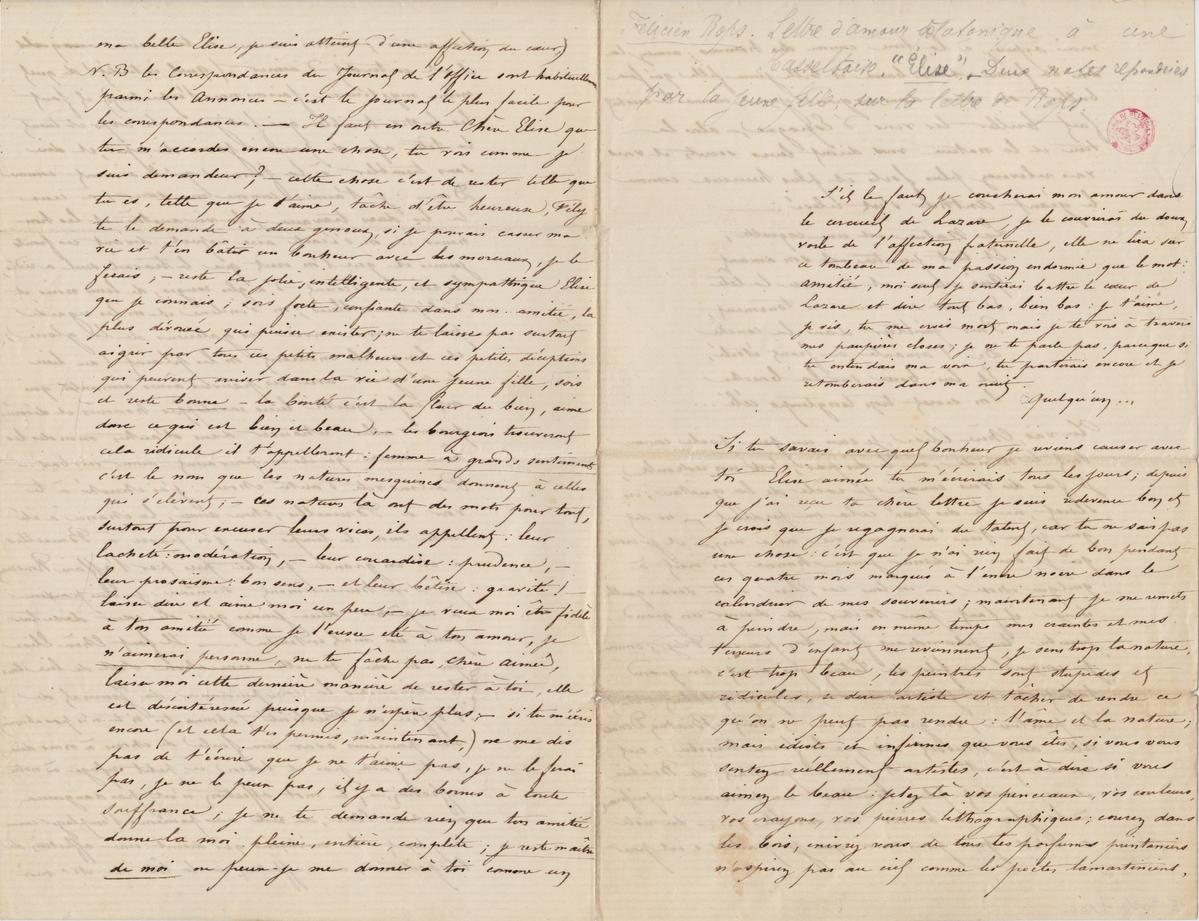 ma belle Elise, je suis atteint d'une affection du cœur)
N. B les correspondances du Journal de l'office sont habituellem
parmi les Annonces – c'est le journal le plus facile pour
les correspondances. — Il faut en outre Chère Elise que
tu m'accordes encore une chose, tu vois comme je
suis demandeur? – cette chose c'est de rester telle que
tu es, telle que je t'aime, tâche d'être heureuse, Fély
te le demande à deux genoux, si je pouvais casser ma
vie et t'en bâtir un bonheur avec les morceaux, je le
ferais, – reste la jolie, intelligente, et sympathique Elise
que je connais; sois forte, confiante dans mon amitié, la
plus dévouée qui puisse exister; ne te laisses pas surtout
aigrir par tous ces petits malheurs et ces petites déceptions
qui peuvent arriver dans la vie d'une jeune fille, sois
et reste bonne – la bonté c'est la fleur du bien, aime
donc ce qui est bien et beau, – les bourgeois trouveront
cela ridicule et t'appelleront: femme à grands sentiments
c'est le nom que les natures mesquines donnent à celles
qui s'élèvent; – ces natures là ont des mots pour tout,
surtout pour excuser leurs vices, ils appellent: leur
lacheté: modération, – leur couardise: prudence, –
leur prosaïsme: bon sens, – et leur bêtise: gravité!
laisse dire et aime moi un peu, – je veux moi être fidèle
à ton amitié comme je l'eusse été à ton amour, je
n'aimerai personne, ne te fâche pas, chère aimée,
laisse moi cette dernière manière de rester à toi, elle
est désintéressée puisque je n'espère plus, – si tu m'écris
encore (et cela t'es permis, maintenant,) ne me dis
pas de t'écrire que je ne t'aime pas, je ne le ferai
pas, je ne le peux pas, il y a des bornes à toute
souffrance; je ne te demande rien que ton amitié
donne la moi pleine, entière, complète; je reste maître
de moi ne peux-je me donner à toi comme un
Félicien Rops. Lettre d'amour platonique à une
Casseltoise. "Elise". Deux notes
par la jeune fille, sur la lettre de Rops
S'il le faut je coucherai mon amour dans
le cercueil de Lazare je le couvrirai du doux
voile de l'affection fraternelle, elle ne lira sur
ce tombeau de ma passion endormie que le mot:
amitié, moi seul je sentirai battre le cœur de
Lazare et dire tout bas, bien bas: je t'aime,
je vis, tu me crois mort mais je te vois à travers
mes paupières closes; je ne te parle pas, parceque si
tu entendais ma voix, tu partirais encore et je
retomberais dans ma nuit.
Quelqu'un...
Si tu savais avec quel bonheur je reviens causer avec
toi Elise aimée tu m'écrirais tous les jours; depuis
que j'ai reçu ta chère lettre je suis redevenu bon et
je crois que je regagnerai du talent, car tu ne sais pas
une chose: c'est que je n'ai rien fait de bon pendant
ces quatre mois marqués à l'encre noire dans le
calendrier de mes souvenirs; maintenant je me remets
à peindre, mais en même temps mes craintes et mes
terreurs d'enfant me reviennent, je sens trop la nature,
c'est trop beau, les peintres sont stupides et
ridicules, se dire artiste et tacher de rendre ce
qu'on ne peut pas rendre: l'ame et la nature;
mais idiots et infirmes que vous êtes, si vous vous
sentez réellement artistes, c'est à dire si vous
aimez le beau: jetez là vos pinceaux, vos couleurs,
vos crayons, vos pierres lithographiques; courez dans
les bois, enivrez vous de tous les parfums printaniers
n'aspirez pas au ciel comme les poètes lamartiniens,